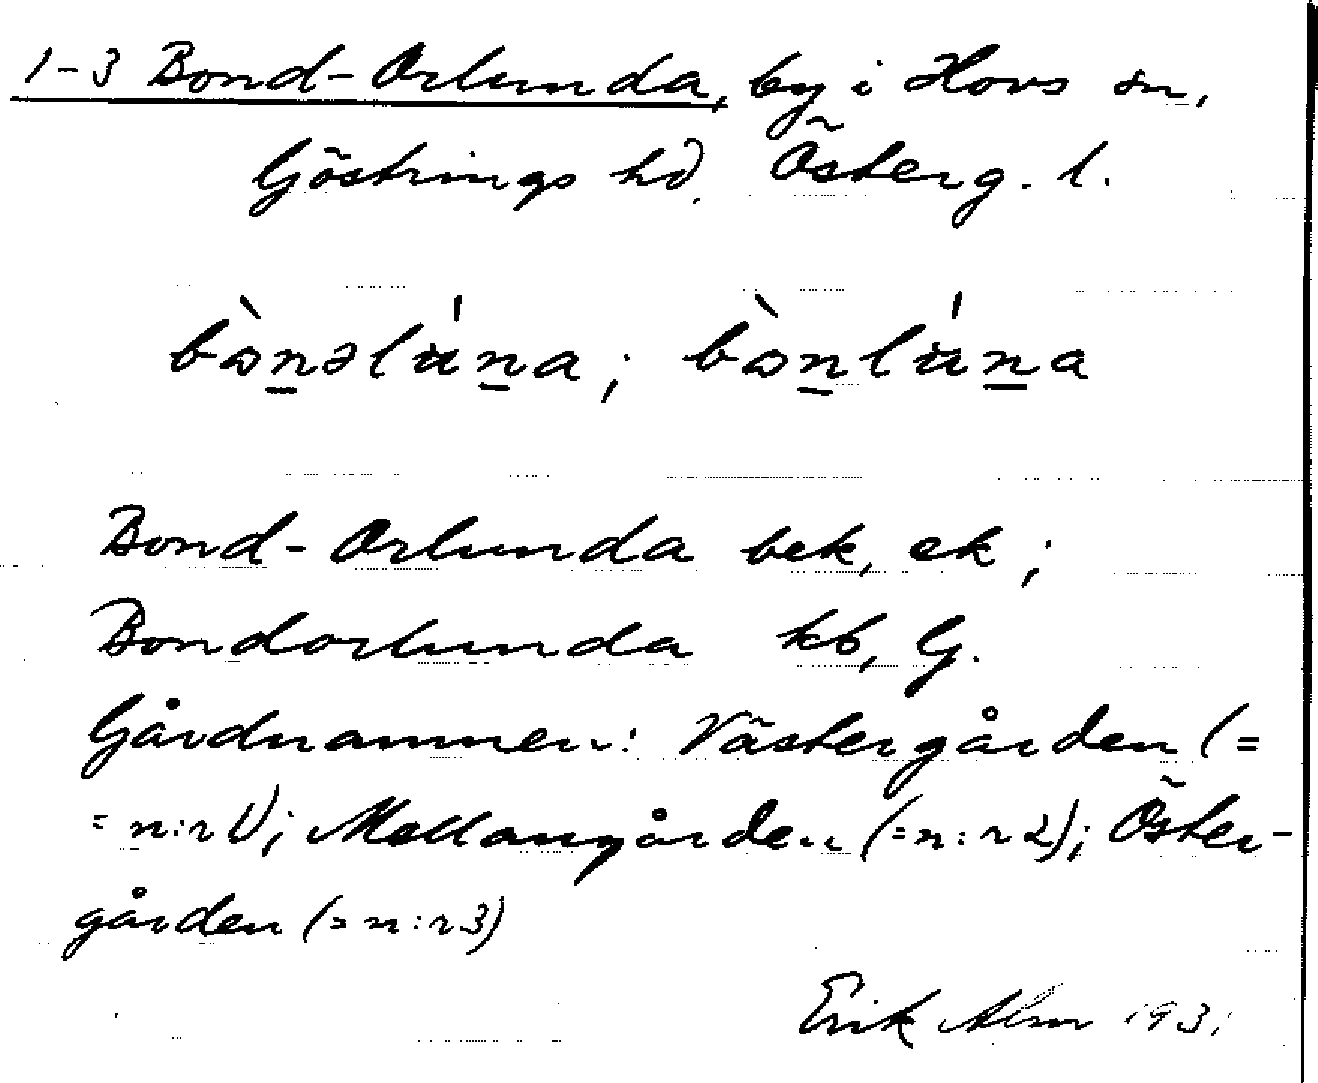 1-3 Bond-Orlunda, by i Hovs sn,
Göstrings hd. Österg. l.
bò̠nəlúna; bònlúna
Bond-Orlunda bek, ek;
Bondorlunda kb, G.
Gårdnamnen: Västergården (=
= n:r 1); Mellangården (=n:r 2); Öster-
gården (=n:r 3)
Erik Alm 1931